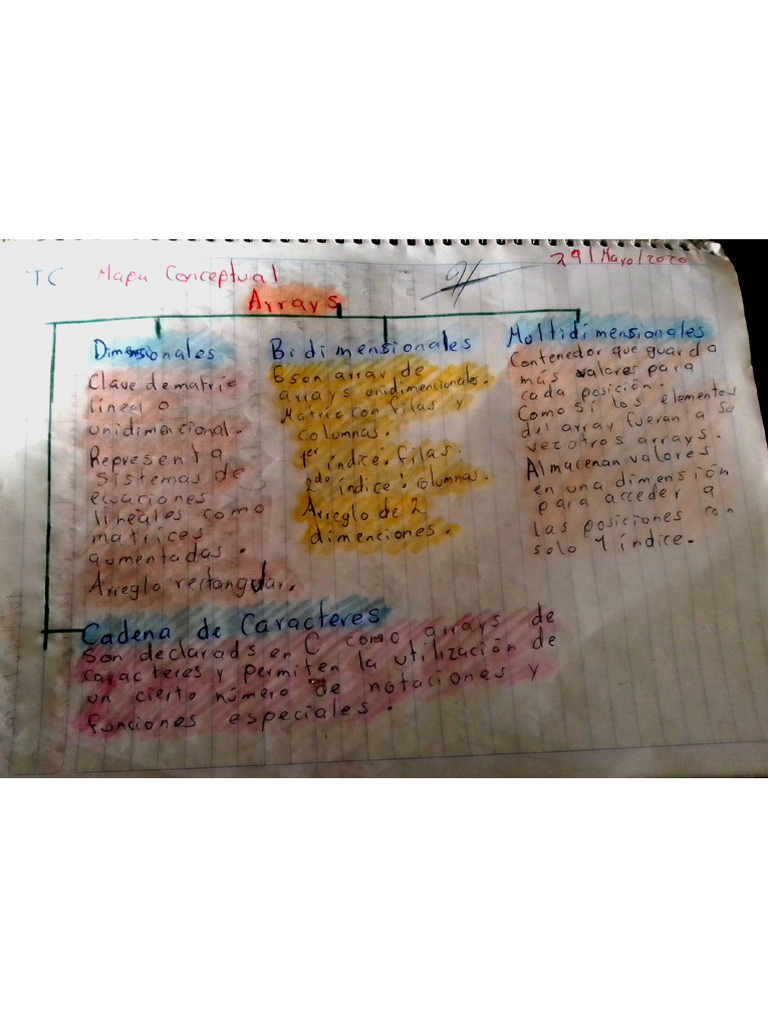 TC Mapa Conceptual
29/Mayo/2020
Arrays
Dimensionales
Clave de matriz
lineal o
unidimencional.
Representa
sistemas de
ecuaciones
lineales como
matrices
aumentadas.
Arreglo rectangular.
Bidimensionales
Eson array de
arrays unidimencionales.
Matriz con filas y
columnas.
1er índice: filas.
2do índice: columnas.
Arreglo de 2
dimenciones.
Multidimensionales
Contenedor que guarda
más valores para
cada posición.
Como si los elementos
del array fueran a su
vez otros arrays.
Almacenan valores
en una dimensión
para acceder a
las posiciones con
solo 1 índice.
Cadena de Caracteres
Son declarads en C como arrays de
caracteres y permiten la utilización de
un cierto número de notaciones y
funciones especiales.